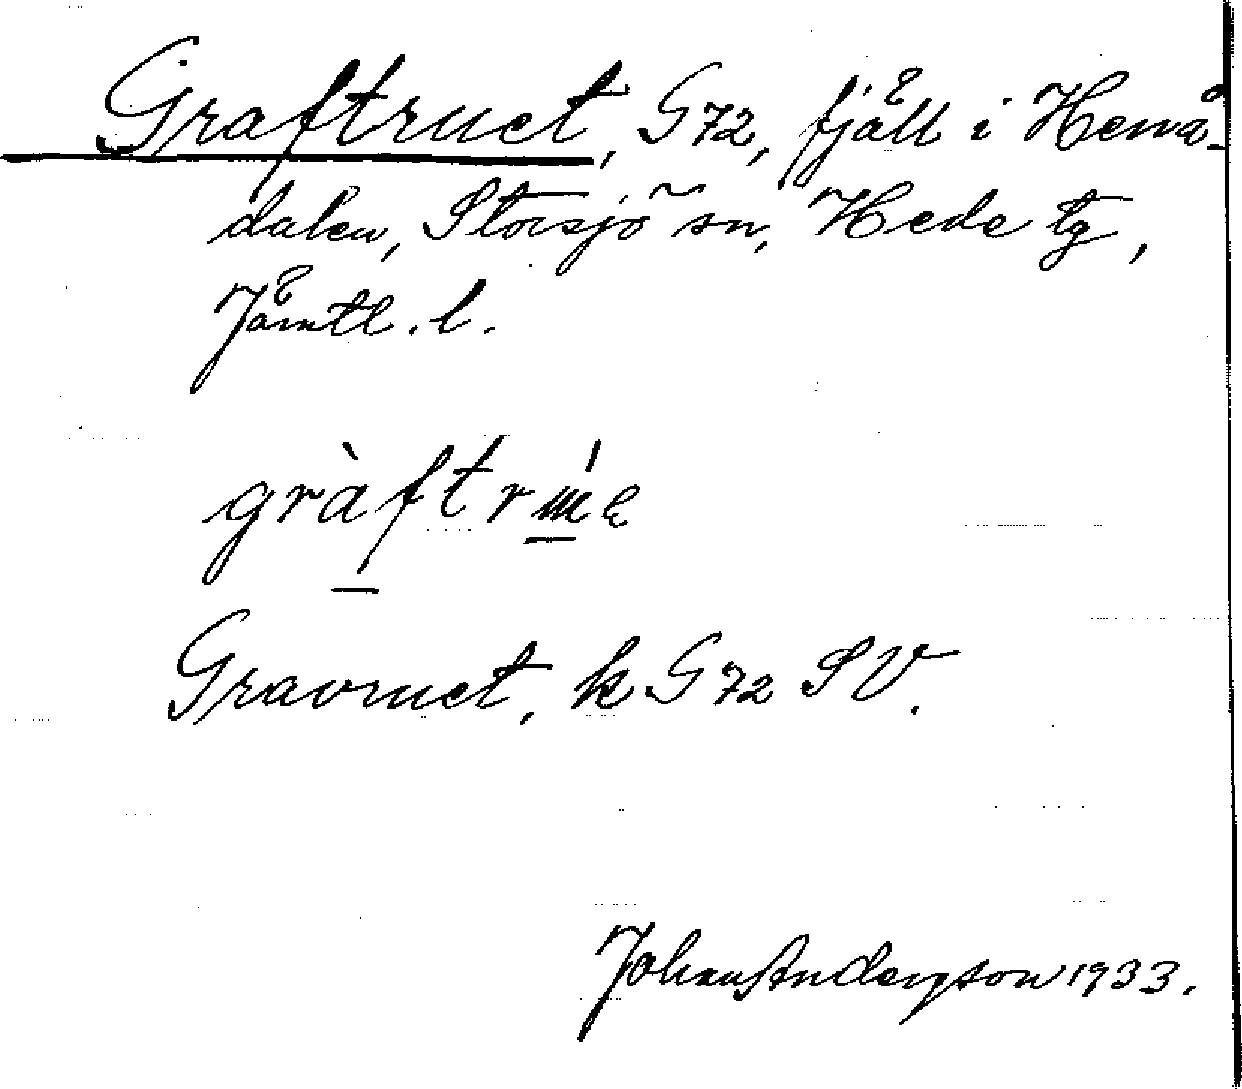 Graftruet, G72, fjäll i Hemå-
dalen, Storsjö sn, Hede tg,
Jämtl. l.
Gravruet, k G72 SV.
Johan Anderzson 1933.